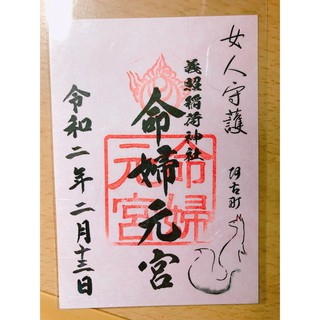 女人守護
阿古町
義照稲荷神社
命婦元宮
命婦
元宮
令和二年二月十三日